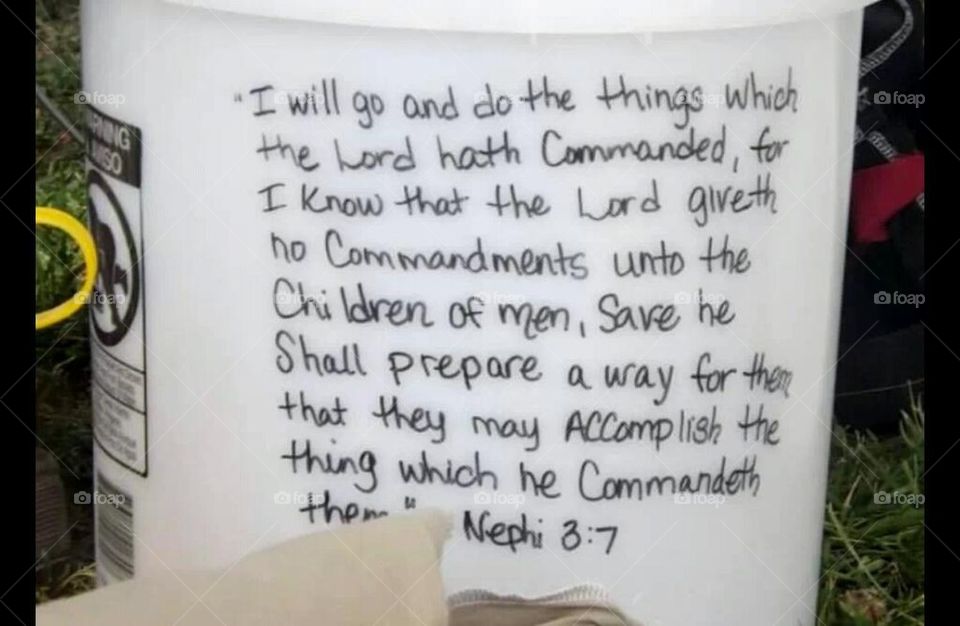 foap foap foap foap
"I will go and do the things which
the Lord hath Commanded, for
I Know that the Lord giveth
no Commandments unto the
Children of men, Save he
Shall prepare a way for them
that they may ACComplish the
thing which he Commandeth
them" Nephi 3:7
foap foap foap foap
foap foap foap foap